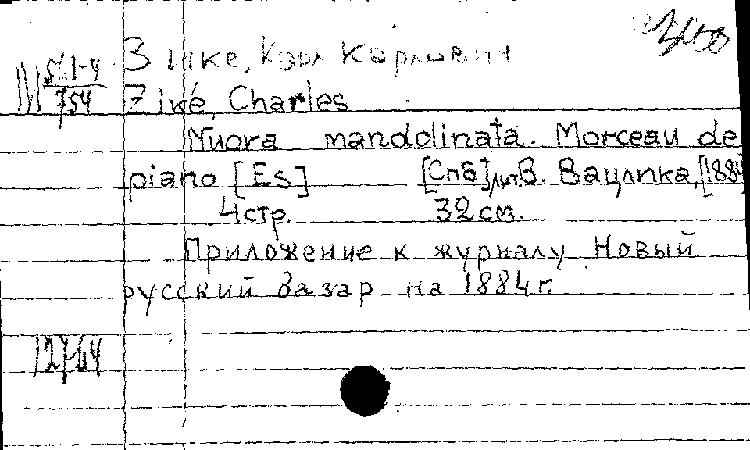 Зике, Карл Карлович
М 54 1-4
754
Ziké, Charles
Nuova mandolinata. Morceau de
piano [Es] [Спб], лит. В. Вацлика, [1884]
4 стр. 32 см.
Приложение к журналу Новый
русский базар на 1884 г.